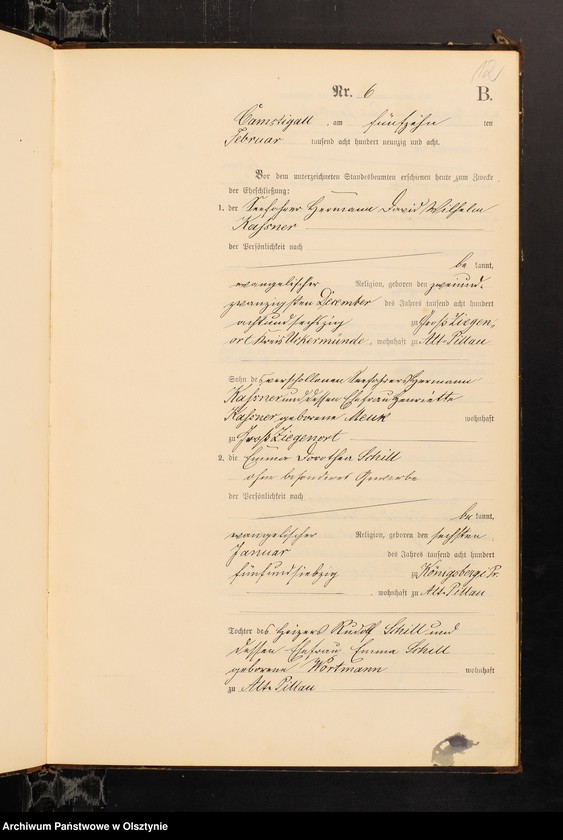 Nr. 6
B.
Camstigall, am fünfzehn ten
Februar tausend acht hundert neunzig und acht.
Vor dem unterzeichneten Standesbeamten erschienen heute zum Zwecke
der Eheschließung:
1. der Seefahrer Hermann David Wilhelm
Kassner
der Persönlichkeit nach
be kannt,
evangelischer Religion, geboren den zweiund-
zwanzigsten December des Jahres tausend acht hundert
achtundsechszig zu Groß Ziegen-
ort Kreis Uckermünde, wohnhaft zu Alt-Pillau
Sohn des verschollenen Seefahrers Hermann
Kassner und dessen Ehefrau Henriette
Kassner, geborene Menk wohnhaft
zu Groß Ziegenort
2. die Emma Dorothea Schill
ohne besonderes Gewerbe
der Persönlichkeit nach
be kannt,
evangelischer Religion, geboren den sechsten
Januar des Jahres tausend acht hundert
fünfundsiebzig zu Königsberg i. Pr.
, wohnhaft zu Alt-Pillau
Tochter des Heizers Rudolf Schill und
dessen Ehefrau Emma Schill
geborene Wortmann wohnhaft
zu Alt-Pillau
Archiwum Państwowe w Olsztynie